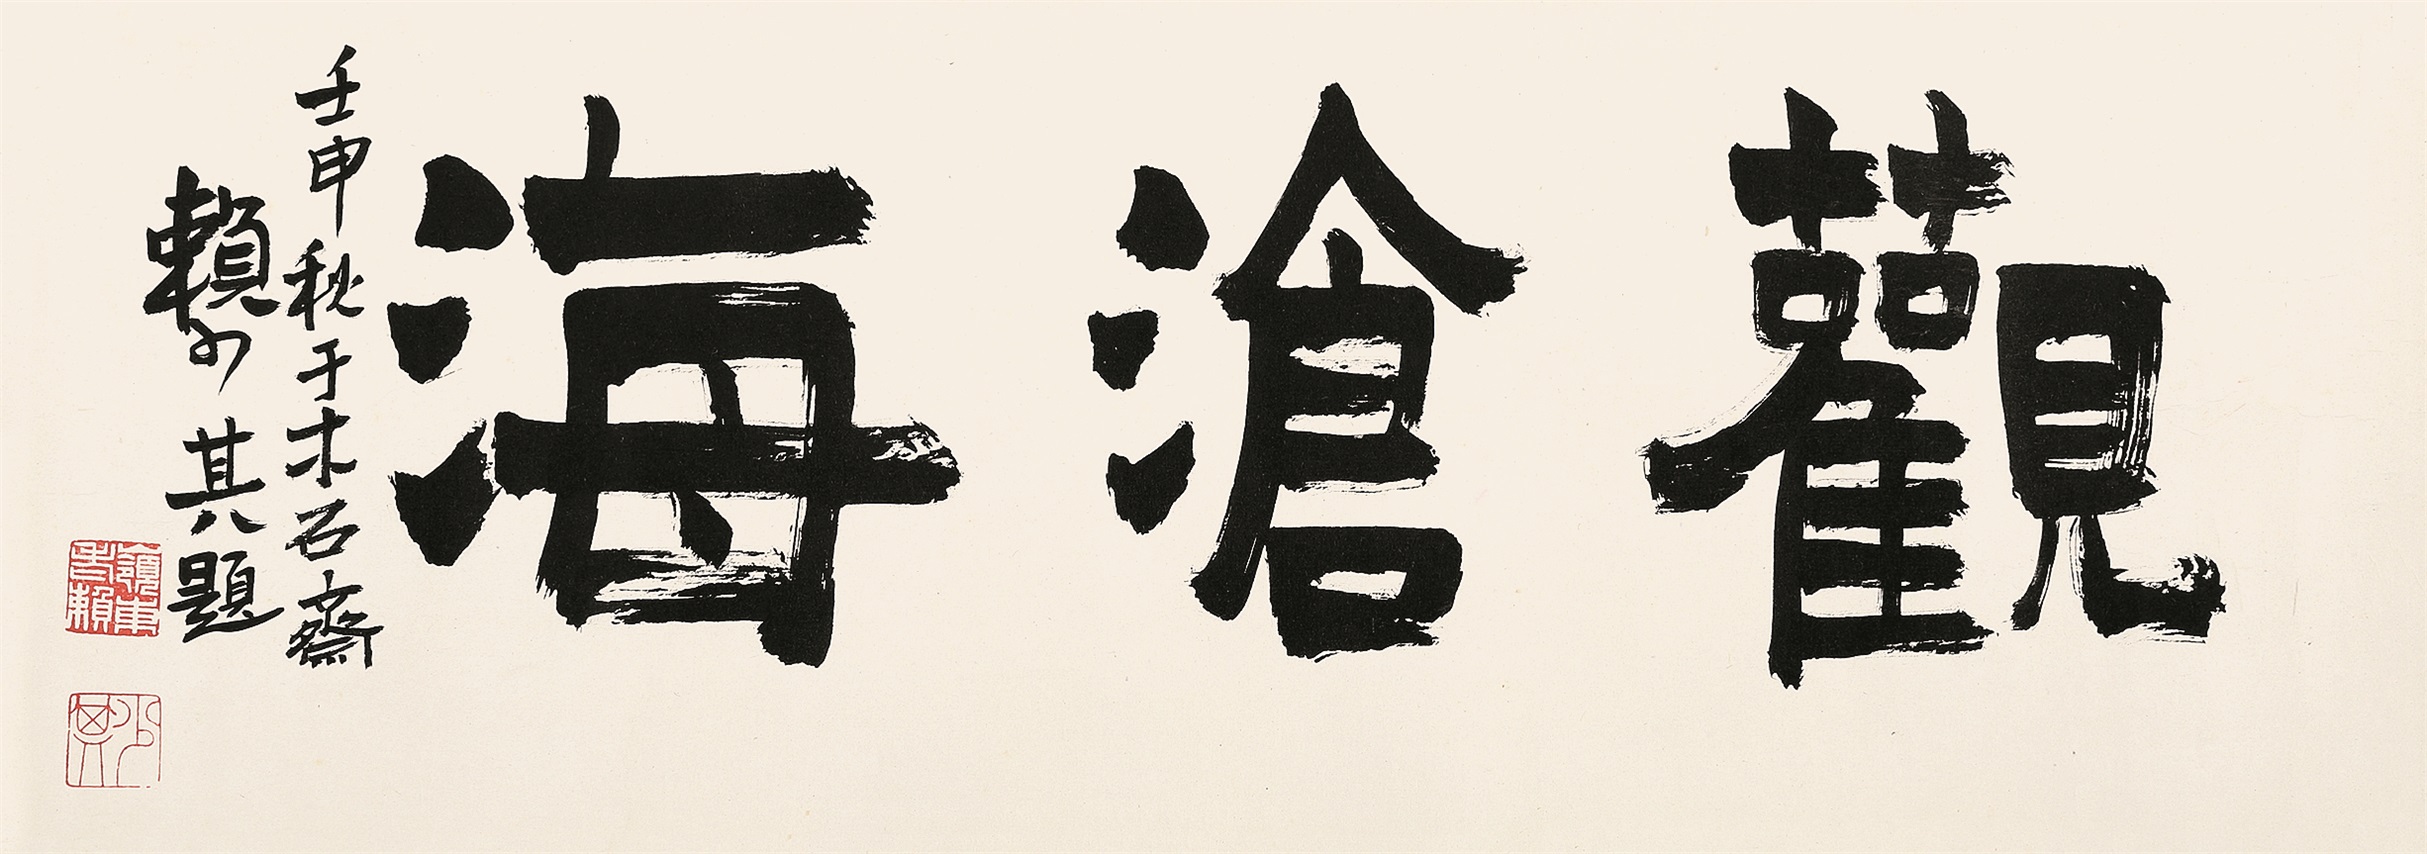 觀滄海
壬申秋于木石齋
賴少其題
嶺東老賴
少其